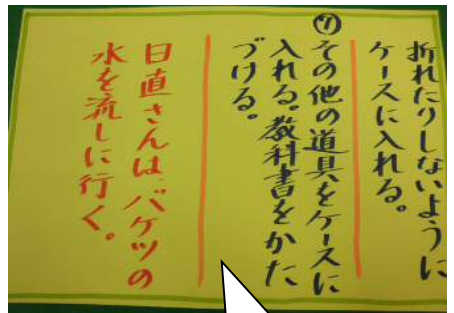 折れたりしないように
ケースに入れる。
⑦その他の道具をケースに
入れる。教科書をかた
づける。
日直さんは、バケツの
水を流しに行く。